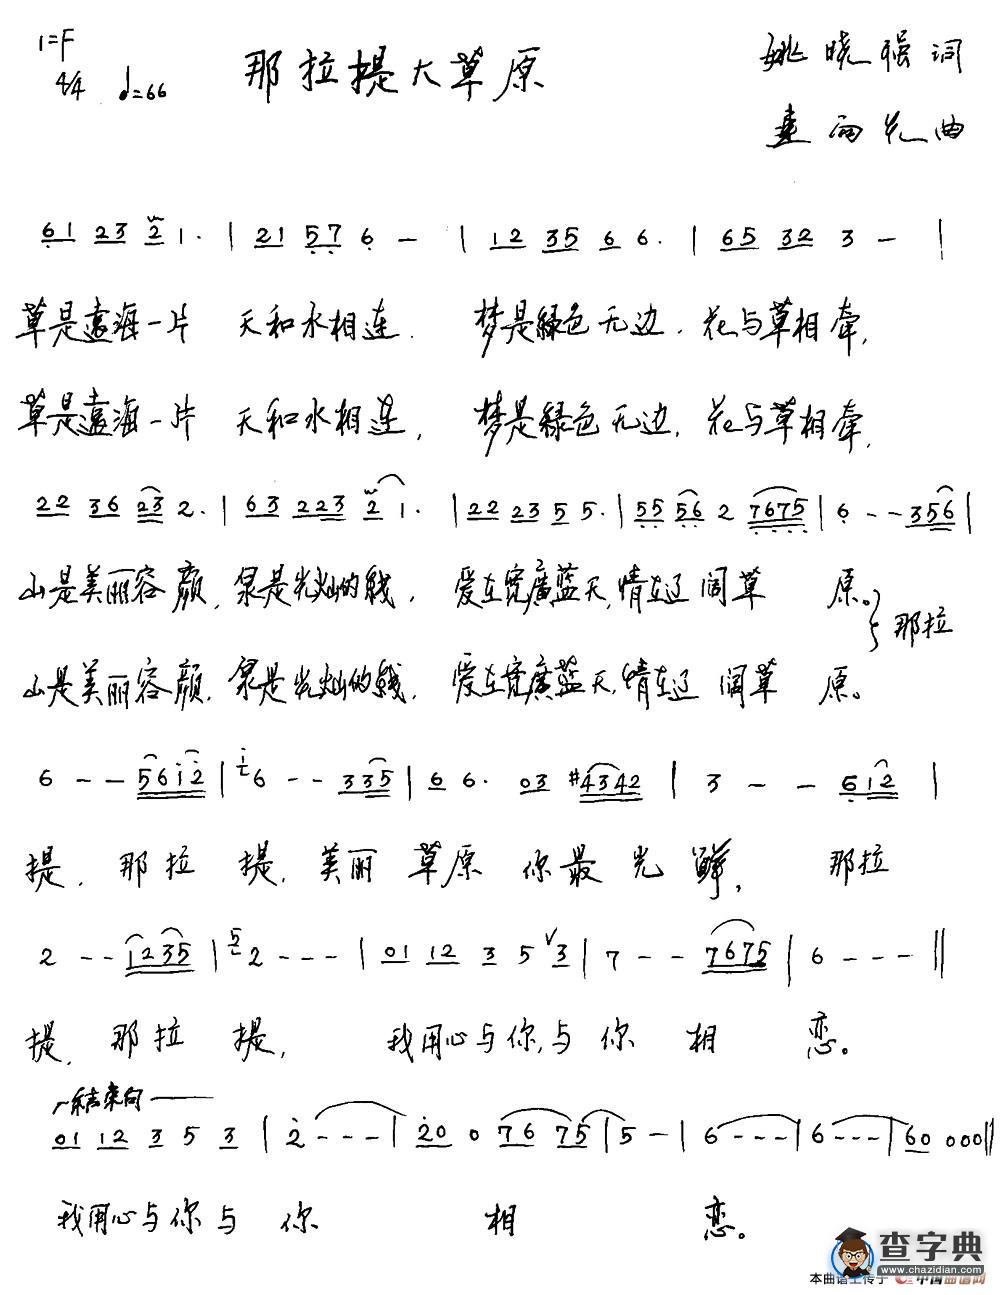 1=F
4/4 ♩=66
那拉提大草原
姚晓强词
雨光曲
6 1 2 3 2 1 · | 2 1 5 7 6 — | 1 2 3 5 6 6 · | 6 5 3 2 3 — |
草是遠海一片 天和水相连. 梦是緑色无边. 花与草相牵,
草是遠海一片 天和水相连, 梦是緑色无边, 花与草相牵,
2 2 3 6 2 3 2 · | 6 3 2 2 3 2 1 · | 2 2 2 3 5 5 · | 5 5 5 6 2 7 6 7 5 | 6 - - 3 5 6 |
山是美丽容颜, 泉是光灿的线, 爱在宽廣蓝天, 情在辽阔草 原。} 那拉
山是美丽容颜, 泉是光灿的线, 爱在宽廣蓝天, 情在辽阔草 原。
6 - - 5 6 i 2 | i 6 - - 3 3 5 | 6 6 · 0 3 #4 3 4 2 | 3 - - 6 1 2 |
提, 那拉 提, 美丽 草原 你最 光 鲜, 那拉
2 - - 1 2 3 5 | 5 2 - - - | 0 1 1 2 3 5 V 3 | 7 - - 7 6 7 5 | 6 - - - ‖
提, 那拉 提, 我用心与你,与 你 相 恋。
结束句
0 1 1 2 3 5 3 | 2 - - - | 2 0 0 7 6 7 5 | 5 — | 6 - - - | 6 - - - | 6 0 0 0 0 ‖
我用心与你与 你 相 恋。
查字典
www.chazidian.com
本曲谱上传于 中国曲谱网